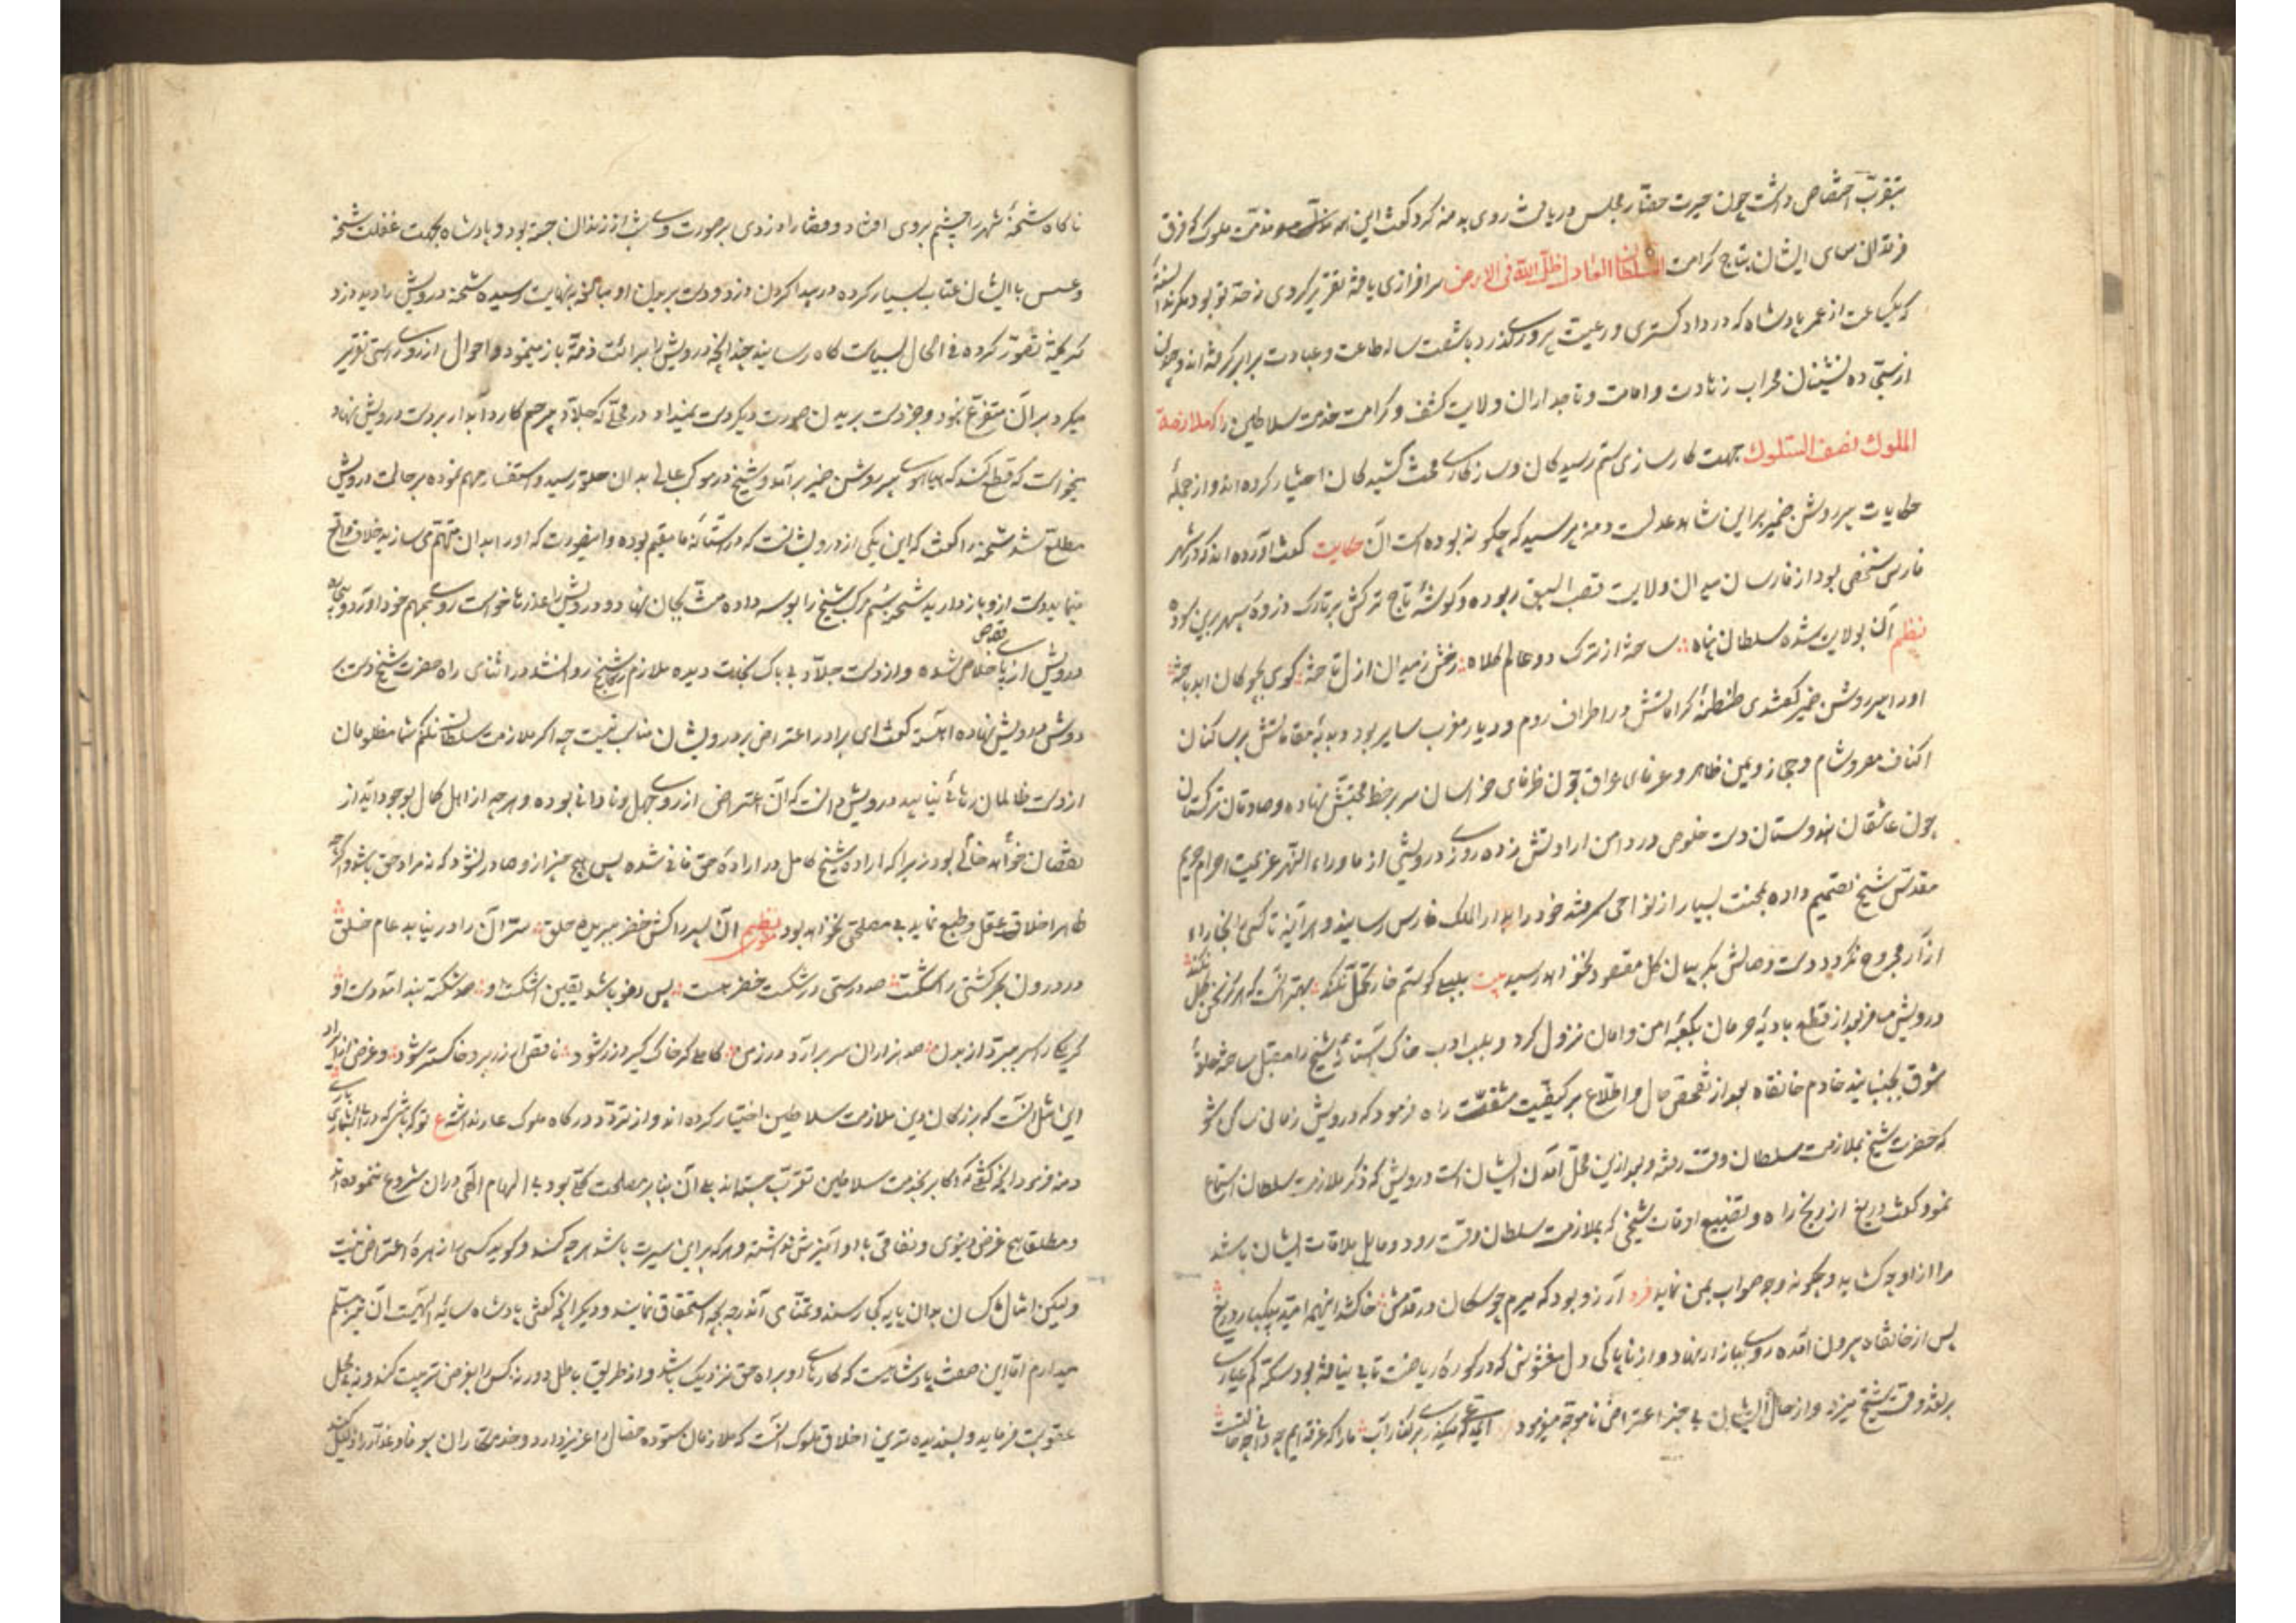 بتقرب اختصاص داشت چون حیرت حضار مجلس دریافت روی بدمنه کرد گفت این همه مذمت ملوک که فرق
فرقدان سای ایشان بتاج کرامت السلطان العادل ظل الله فی الارض سرافرازی یافته تقریر کردی نه حد تو بود مگر نه
که یکساعت از عمر پادشاه که در دادگستری و رعیت پروری گذرد با شصت ساله طاعت و عبادت برابر گرفته اند و چون
از سجاده نشینان محراب زهادت و امامت و تاجداران ولایت کشف و کرامت خدمت سلاطین را که ملازمة
الملوک نصف السلوک جهت کارسازی ستم رسیدگان و سازکاری محنت کشیدگان اختیار کرده اند و از جمله
حکایات پیر روشن ضمیر براین شاهد عدلست دمنه پرسید که چگونه بوده است آن حکایت گفت آورده اند که در شهر
فارس شخصی بود از فارسان میدان ولایت قصب السبق ربوده و گوشه تاج ترکش بر تارک ذروه سپهر برین سوده
نظم آن بولایت شده سلطان پناه ساخته از ترک دو عالم کلاه رخش ز میدان ازل تاخته گوی بچوگان ابد باخته
او را پیر روشن ضمیر گفتندی طنطنه کراماتش در اطراف روم و دیار مغرب سایر بود و دبدبه مقاماتش بر ساکنان
اکناف مصر و شام و حجاز و یمن ظاهر و عرفای عراق چون ظرفای خراسان سر بر خط محبتش نهاده و صادقان ترکستان
چون عاشقان هندوستان دست خلوص در دامن ارادتش زده روزی درویشی از ماوراء النهر عزیمت احرام حریم
مقدس شیخ تصمیم داده بمحنت بسیار از نواحی سمرقند خود را بدار الملک فارس رسانید و هر آینه تا کسی را پای از خار
آزار مجروح نگردد دست وصالش بگریبان گل مقصود نخواهد رسید بیت بلبلی کو ستم خار تحمل نکند بهتر آنست که هرگز سخن گل نکند
درویش مسافر بعد از قطع بادیه حرمان بکعبه امن و امان نزول کرد و بلب ادب خاک آستانه شیخ را مقبل ساخته حلقه
شوق بجنبانید خادم خانقاه بعد از تفحص حال و اطلاع بر کیفیت مشقت راه فرمود که درویش زمانی ساکن شو
که حضرت شیخ بملازمت سلطان وقت رفته و بعد ازین محل آمدن ایشان است درویش که ذکر ملازمت سلطان استماع
نمود گفت دریغ از رنج راه و تضییع اوقات شیخی که بملازمت سلطان وقت رود و مایل ملاقات ایشان باشد
مرا از او چه گشاید و چگونه وجه صواب بمن نماید فرد آرزو بود که میرم چو سگان در قدمش خاک شد اینهمه امید بیکبار دریغ
پس از خانقاه بیرون آمده روی ببازار نهاد و از ناپاکی دل مغشوش که در کوره ریاضت تابی نیافته بود سکه کم عیاری
بر نقد وقت شیخ میزد و از حال ایشان بی خبر اعتراض ناموجه مینمود ای که میگذری بر کنار آب ما را که غرقه ایم چه دانی چه حالتست
ناگاه شحنه شهر را چشم بروی افتاد و قضا را دزدی بر صورت وی شب از زندان جسته بود و پادشاه بجهت غفلت شحنه
و عسس با ایشان عتاب بسیار کرده در پیدا کردن دزد و دست بریدن او مبالغه بنهایت رسیده شحنه درویش را دید دزد
گریخته تصور کرده فی الحال بسیاست گاه رسانید چندانچه درویش برائت ذمه باز مینمود و احوال از روی راستی تقریر
میکرد بر آن متفرع نبود و جز دست بریدن صورت دیگر دست نمیداد در محلی که جلاد بی رحم کارد آبدار بر دست درویش نهاد
میخواست که قطع کند که هیاهوی پیر روشن ضمیر برآمد و شیخ در موکب عالی بدان حلقه رسید و استفسار مهم نموده بر حالت درویش
مطلع شد شحنه را گفت که این یکی از درویشانست که در آستانه ما مقیم بوده و اینصورت که او را بدان متهم می سازند خلاف واقع
مینماید دست ازو باز دارید شحنه سم مرکب شیخ را بوسه داده منت بجان نهاد و درویش را عذرها خواست روی بمهم خود آورد و
درویش از پای قصاص خلاص شده و از دست جلاد بی باک نجات دیده ملازم شیخ روان شد در اثنای راه حضرت شیخ دست بر
دوش درویش نهاده آهسته گفت ای برادر اعتراض بر درویشان مناسب نیست چه اگر ملازمت سلطان نکنم شما مظلومان
از دست ظالمان رهائی نیابید درویش دانست که آن اعتراض از روی جهل و نادانی بوده و هرچه از اهل کمال بوجود آید از
نقصان خواهد خالی بود زیرا که اراده شیخ کامل در اراده حق فانی شده پس هیچ چیز از و صادر نشود که نه مراد حق باشد و اگرچه
ظاهرا خلاف عقل و طبع نماید بی مصلحتی نخواهد بود نظم آن پسر را کش خضر ببرید حلق سر آن را در نیابد عام خلق
در درون بحر کشتی را شکست صد درستی در شکست خضر هست پس چو دیو باشد یقین اشکست او صد شکسته بند آمد دست او
گر یکی را سر ببرد از بدن صد هزاران سر برآرد در زمن کاملی گر خاک گیرد زر شود ناقص ار زر برد خاکستر شود و غرض از ایراد
این مثل آنست که بزرگان دین ملازمت سلاطین اختیار کرده اند و از تردد درگاه ملوک عار نداشته ع تو که باشی که در شماری
دمنه فرمود آنچه گفتی که اکابر بخدمت سلاطین تقرب جسته اند بلی آن بنا بر مصلحت کلی بود بی الهام الهی دران شروع ننموده اند
و مطلقا هیچ غرض دنیوی و نفسانی با او آمیزش نداشته و هر که براین سیرت باشد هر چه کند و گوید کسی را زهره اعتراض نیست
ولیکن امثال ما کسان بدان پایه کجا رسند و تمنای آندرجه بچه استحقاق نمایند و دیگر آنچه گفتی پادشاه سایه الهیست آن نیز مسلم
میدارم اما این صفت پادشاهیست که کارهای او براه حق نزدیک باشد و از طریق باطل دور نه کس را بغرض تربیت کند و نه بجهل
عقوبت فرماید و پسندیده ترین اخلاق ملوک آنست که ملازمان ستوده خصال را عزیز دارد و خدمتکاران بیوفا و غدار را ذلیل کند